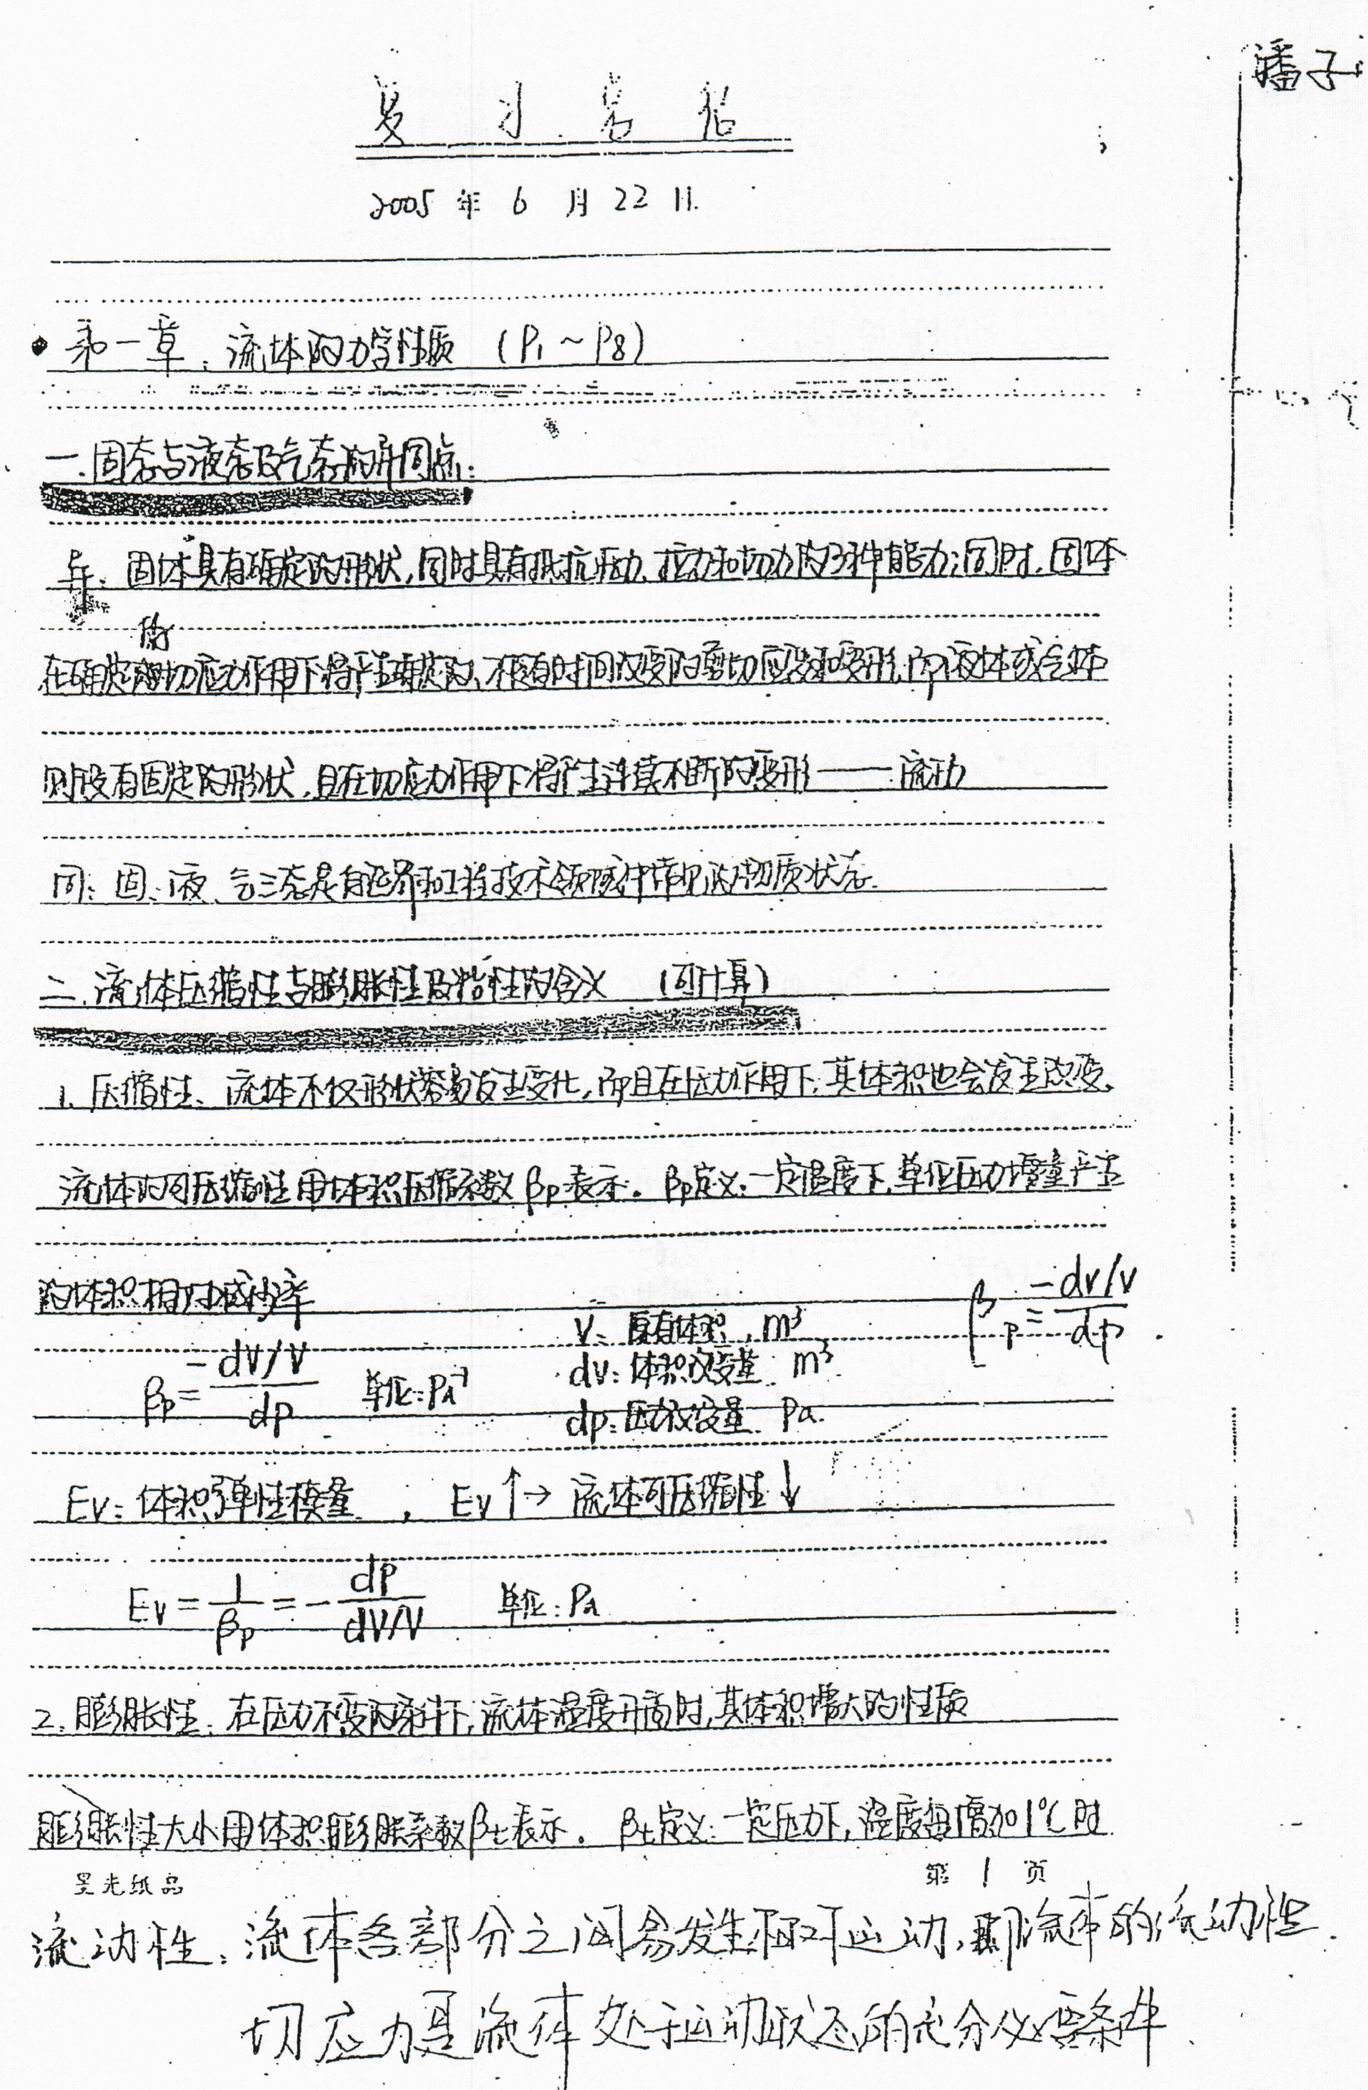 潘子
复习
2005年6月22日
第一章：流体的力学性质 (P1~P8)
一.固态与液态及气态的异同点:
异: 固体具有确定的形状,同时具有抵抗压力、拉力和切力的三种能力;同时,固体
的
在确定切应力作用下将产生确定的、不随时间改变的剪切应变和变形,而液体或气体
则没有固定的形状,且在切应力作用下将产生连续不断的变形——流动
同: 固、液、气三态是自然界和工程技术领域中常见的物质状态.
二.流体压缩性与膨胀性及粘性的含义 (可计算)
1.压缩性、流体不仅形状容易发生变化,而且在压力作用下,其体积也会发生改变.
流体的可压缩性用体积压缩系数βp表示。βp定义:一定温度下,单位压力增量产生
的体积相对减少率
βp = -dV/V / dp
βp = -dV/V / dp 单位:Pa⁻¹
V: 原有体积, m³
dV: 体积改变量 m³
dp: 压力改变量 Pa.
Ev: 体积弹性模量, Ev↑→ 流体可压缩性↓
Ev = 1/βp = - dp / dV/V 单位: Pa
2.膨胀性: 在压力不变的条件下,流体温度升高时,其体积增大的性质
膨胀性大小用体积膨胀系数βt表示。βt定义:一定压力下,温度每增加1℃时
昱光纸品 第 1 页
流动性: 流体各部分之间易发生相对运动,即流体的流动性.
切应力是流体处于运动状态的充分必要条件.